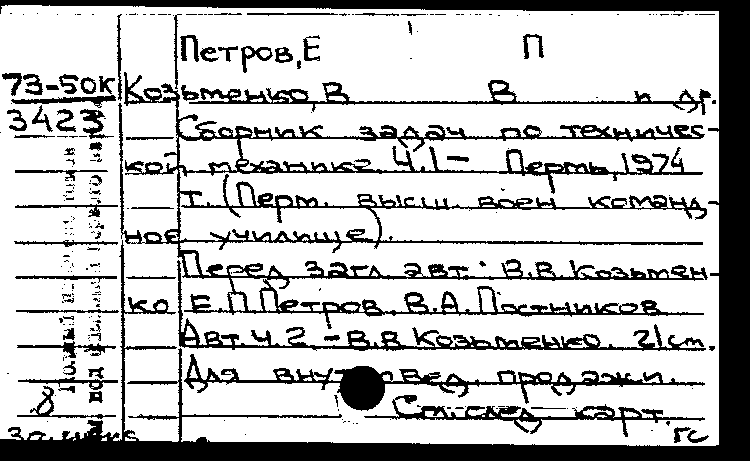 Петров, Е П
73-50к Козьменко, В В и др.
3423
Сборник задач по техничес-
кой механике. Ч.1 – Пермь, 1974
т. (Перм. высш. воен команд-
ное училище).
Перед загл авт.: В.В. Козьмен-
ко Е.П. Петров. В.А. Постников
Авт. ч. 2. – В.В Козьменко. 21 см.
Для продажи.
8 См. след карт.
гс